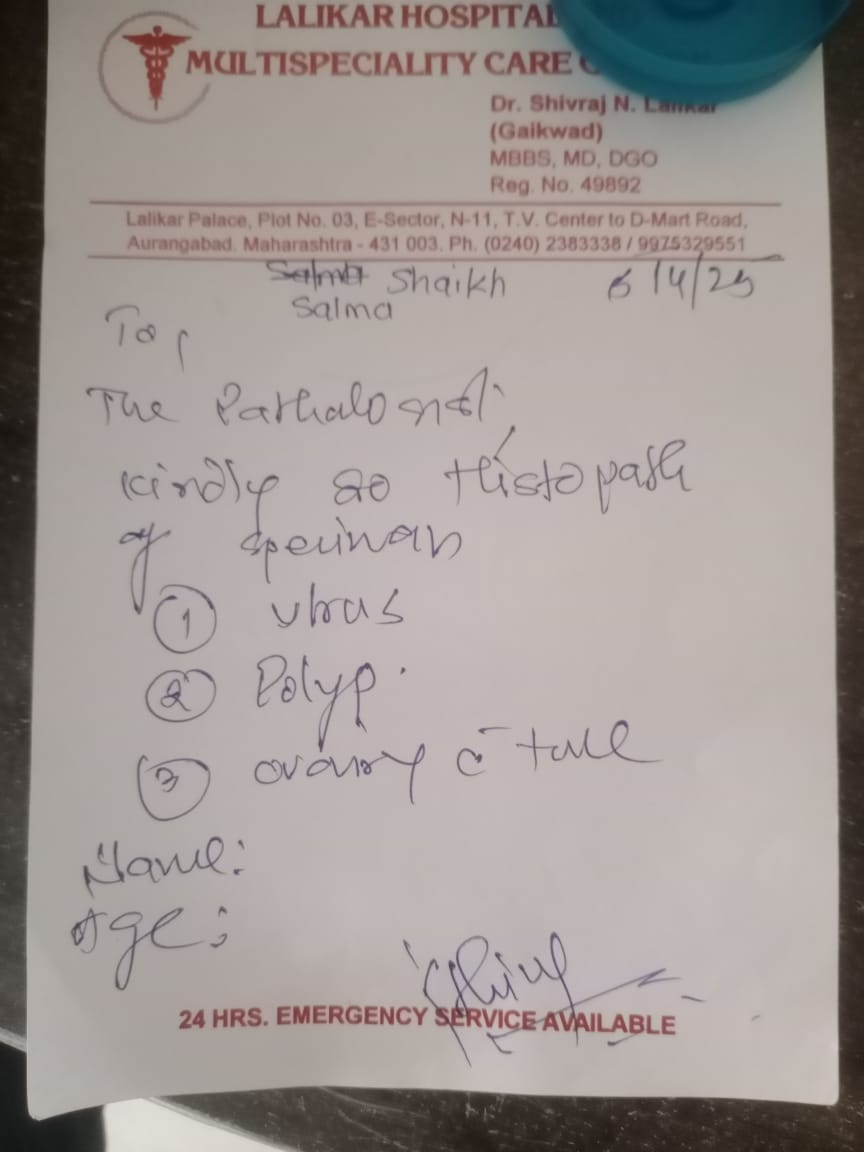 LALIKAR HOSPITAL
MULTISPECIALITY CARE
Dr. Shivraj N. Lalikar
(Gaikwad)
MBBS, MD, DGO
Reg. No. 49892
Lalikar Palace, Plot No. 03, E-Sector, N-11, T.V. Center to D-Mart Road,
Aurangabad. Maharashtra - 431 003. Ph. (0240) 2383338 / 9975329551
Shaikh 6/4/25
Salma
To,
The
Kindly do Histopath
of
1
2 Polyp.
3 ovary c̄
Name:
Age:
24 HRS. EMERGENCY SERVICE AVAILABLE